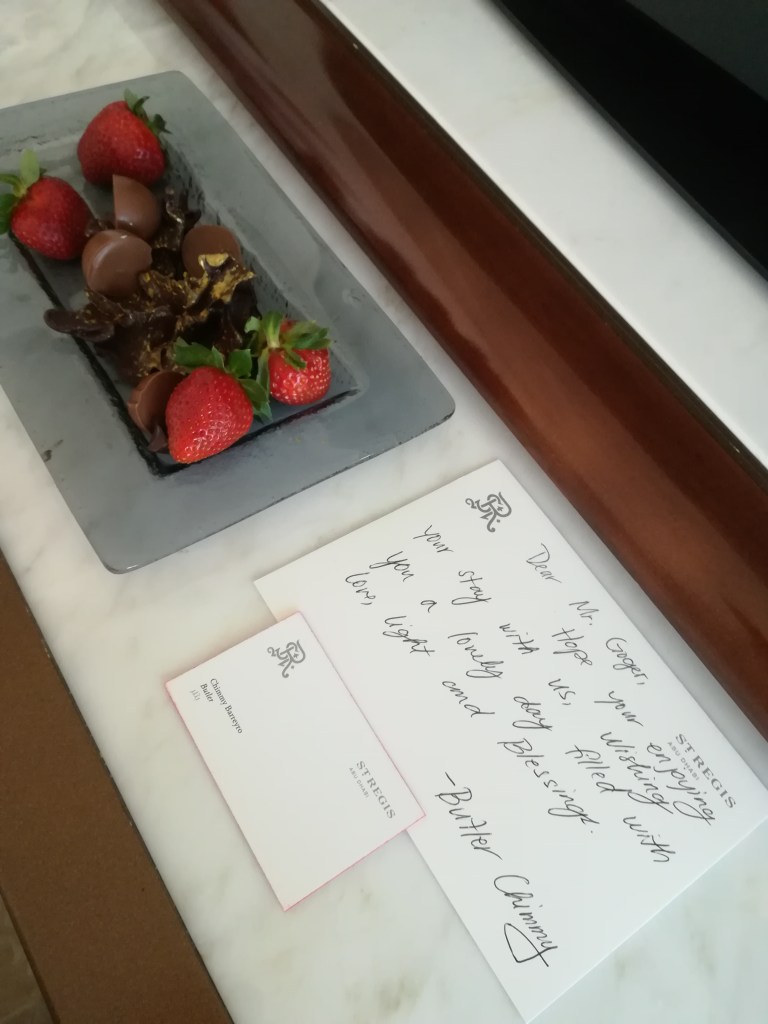 Dear Mr. Goger,
Hope your enjoying
your stay with us, Wishing
you a lovely day filled with
love, light and Blessings.
-Butler Chimmy
ST REGIS
ABU DHABI
Chimmy Barreyro
Butler
ST REGIS
ABU DHABI